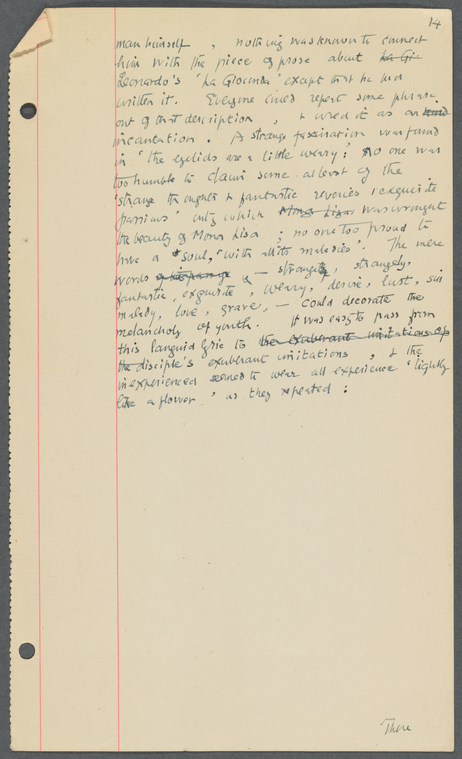 14
man himself, nothing was known to connect
him with the piece of prose about La Gio
Leonardo's 'La Gioconda' except that he had
written it. Everyone could repeat some phrase
out of that description, & used it as an
incantation. A strange fascination was found
in 'the eyelids are a little weary': no one was
too humble to claim some at least of the
'strange thoughts & fantastic reveries & exquisite
passions' into which Mona Lisa was wrought
the beauty of Mona Lisa; no one too proud to
have a 'soul, with all its maladies'. The mere
words — strange, strangely,
fantastic, exquisite, weary, desire, lust, sin
malady, love, grave, — could decorate the
melancholy of youth. It was easy to pass from
this languid lyric to the exuberant imitations of
the disciple's exuberant imitations, & the
inexperienced seemed to wear all experience 'lightly
like a flower' as they repeated:
There